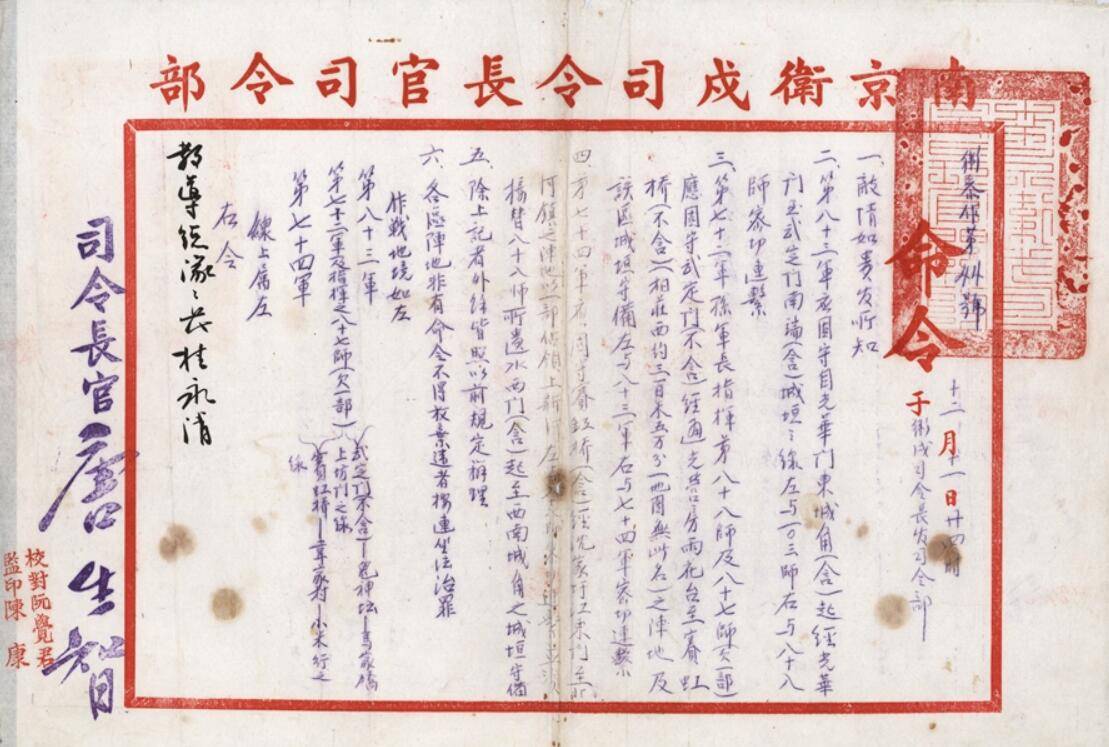 南京衛戍司令長官司令部
命令
十二月十一日廿四時
于衛戍司令長官司令部
衛參作第卅號
一、敵情如貴官所知
二、第八十三軍應固守自光華門東城角(含)起經光華
門至武定門南端(含)城垣之線左與一〇三師右與八十八
師密切連繫
三、第七十二軍孫軍長指揮第八十八師及八十七師(欠一部)
應固守武定門(不含)經通光營房雨花台至賽虹
橋(不含)(相莊西約三百米五万分一地圖無此名)之陣地及
該區城垣守備左與八十三軍右與七十四軍密切連繫
四、第七十四軍應固守賽虹橋(含)經
河鎮之陣地以一部佔領上新河左與
接替八十八師所遺水西門(含)起至西南城角之城垣守備
五、除上記者外餘皆照以前規定辦理
六、各區陣地非有命令不得放棄違者按連坐法治罪
作戰地境如左
第八十三軍
第七十二軍及指揮之八十七師(欠一部)
第七十四軍
武定門(不含)—
上坊門之線
賽虹橋—
小米行之
線
線上屬左
右令
教導總隊總隊長桂永清
司令長官唐生智
校對阮覺君
監印陳康